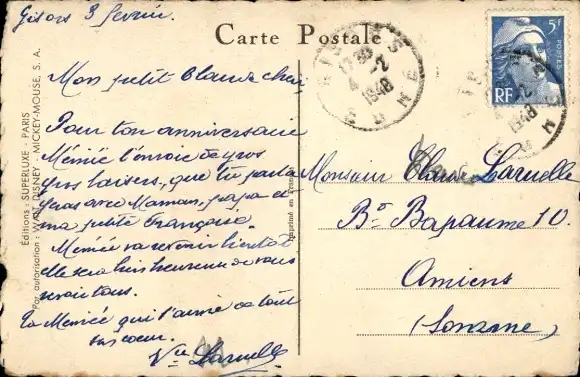 Gisors 3 février.
Carte Postale
Mon petit Claude chéri
Pour ton anniversaire
Mémée t'envoie de gros
gros baisers, que tu partageras
avec Maman, papa et
ma petite Françoise.
Mémée va revenir bientôt
elle sera bien heureuse de vous
revoir tous.
Ta Mémée qui t'aime de tout
son coeur.
Vve Laruelle
Editions : SUPERLUXE - PARIS
Par autorisation : WALT DISNEY - MICKEY-MOUSE, S. A.
Imprimé en France
5F
POSTES
RF
GISORS
4 -2
1948
Monsieur Claude Laruelle
Bd Bapaume 10.
Amiens
(Somme)